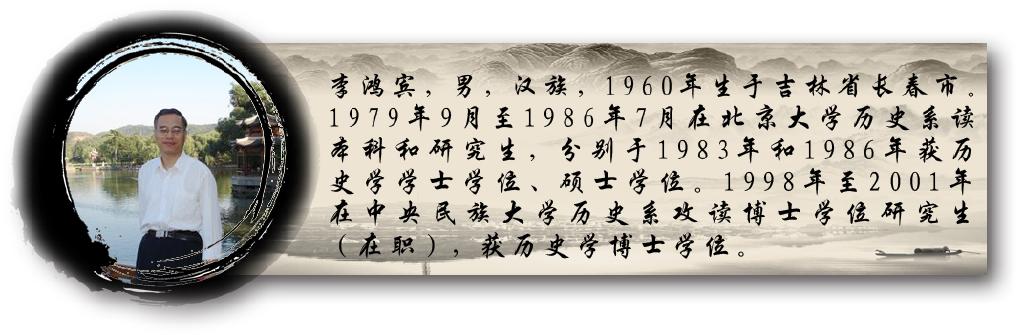 李鸿宾，男，汉族，1960年生于吉林省长春市。
1979年9月至1986年7月在北京大学历史系读
本科和研究生，分别于1983年和1986年获历
史学学士学位、硕士学位。1998年至2001年
在中央民族大学历史系攻读博士学位研究生
（在职），获历史学博士学位。